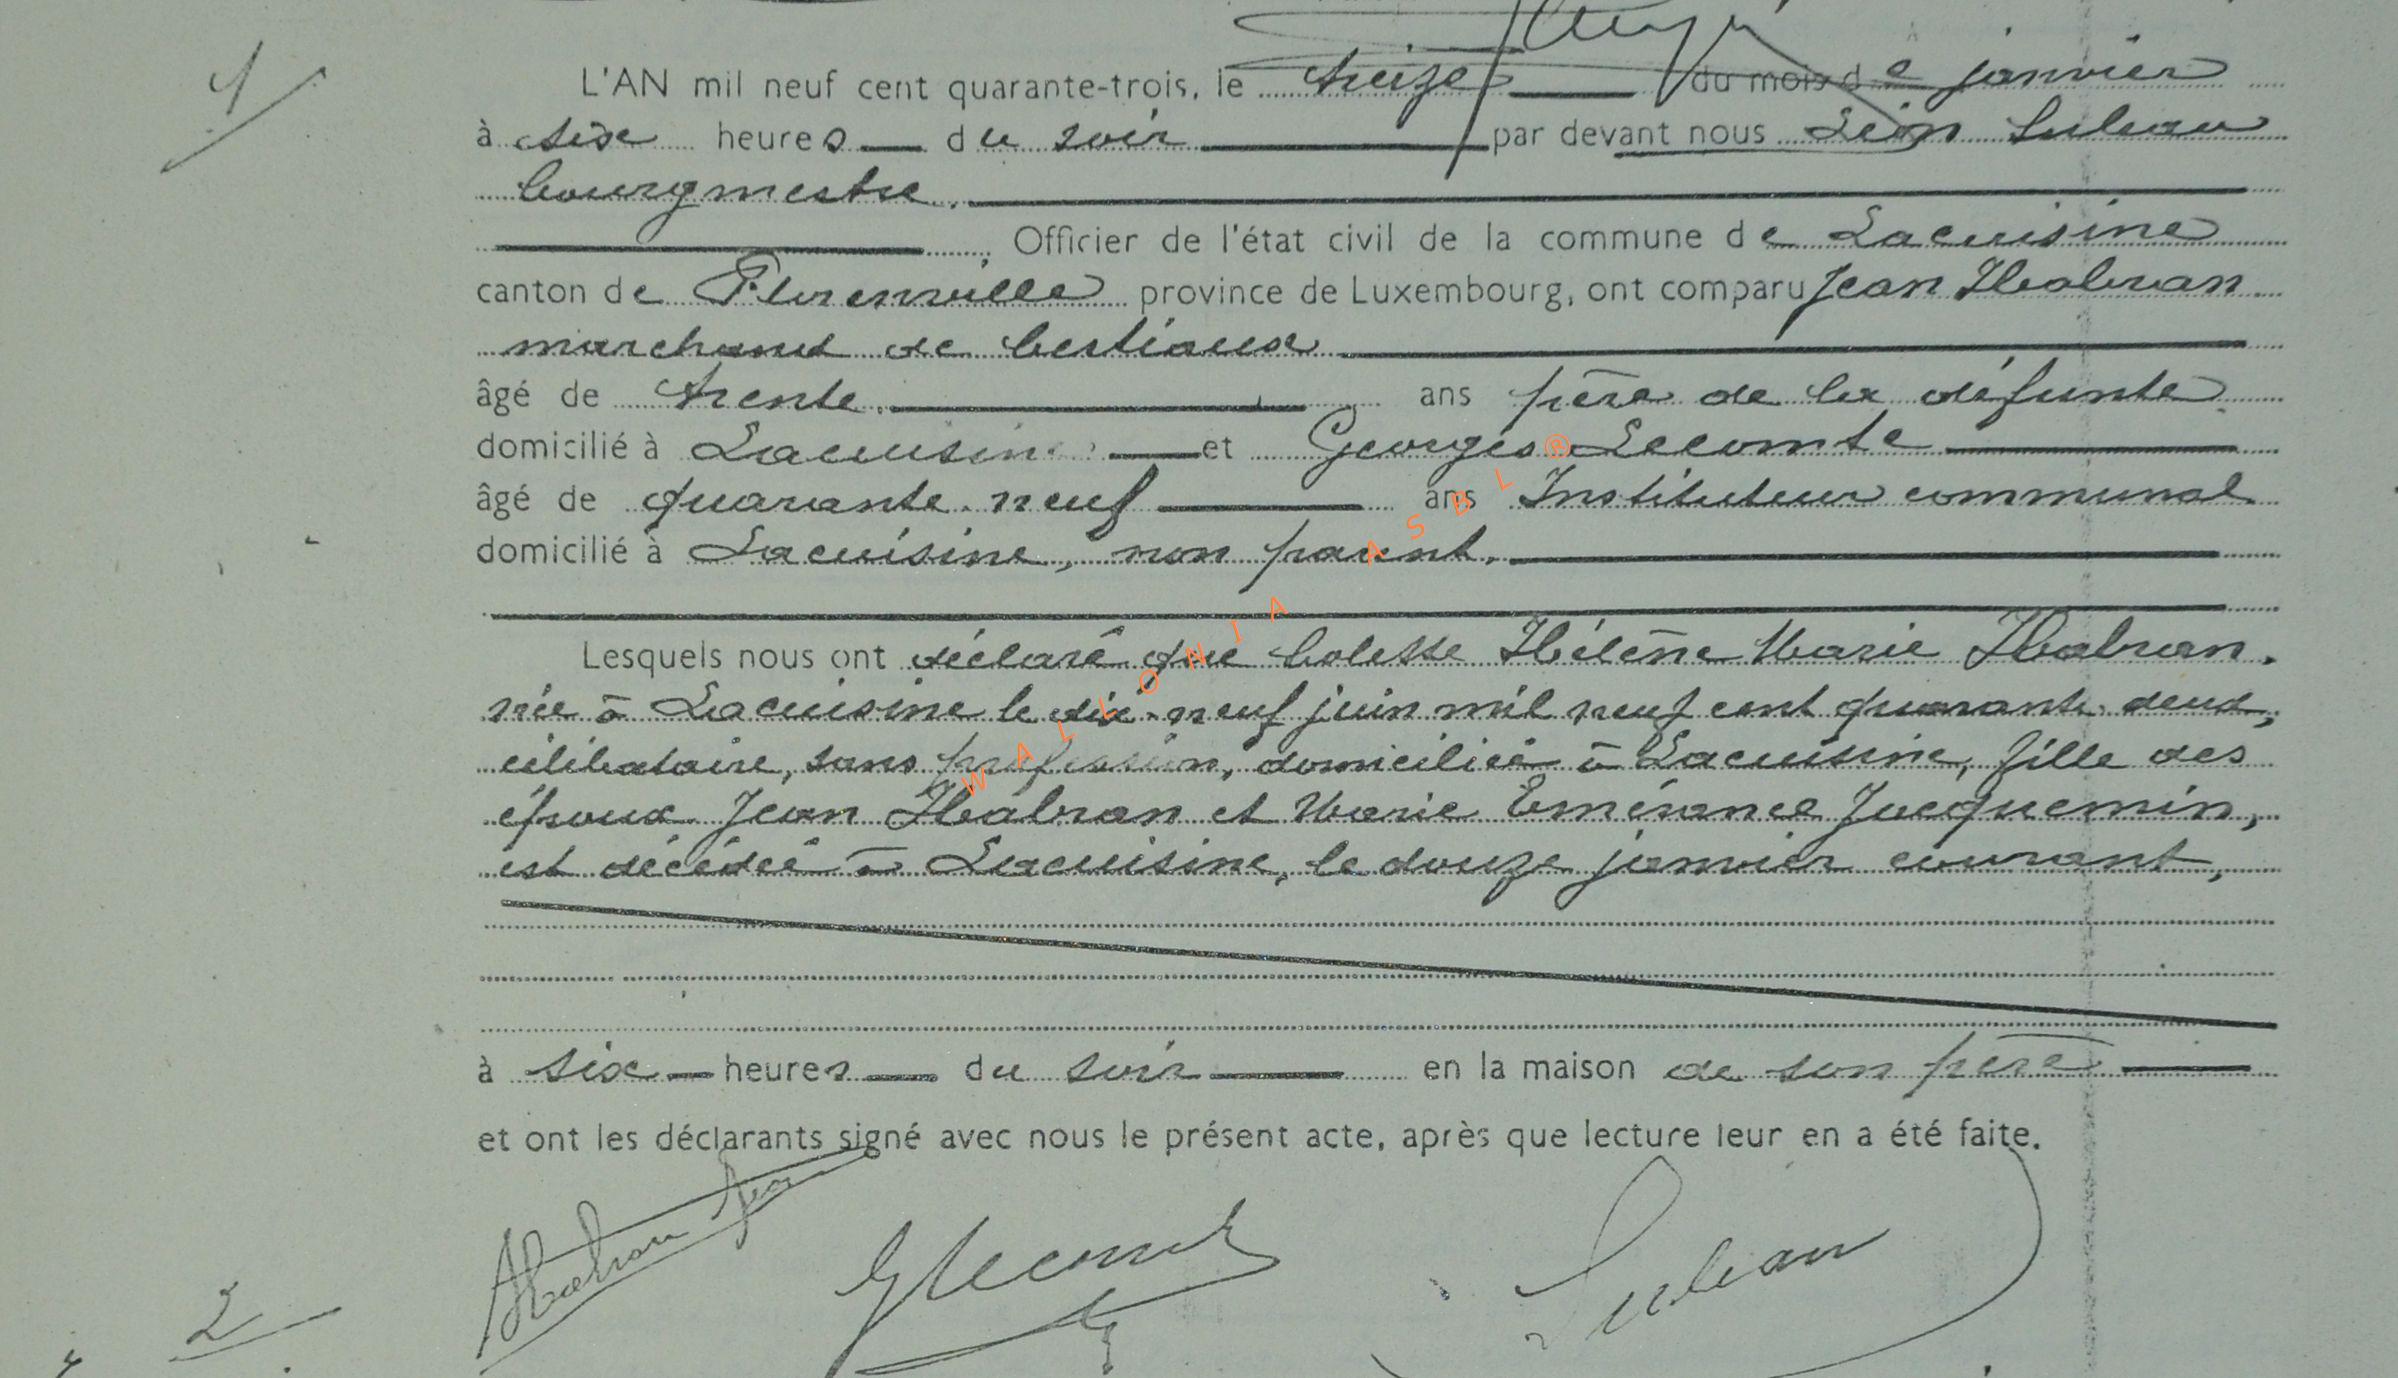 1
L'AN mil neuf cent quarante-trois, le treize du mois de janvier
à six heures du soir par devant nous Léon Luleau
bourgmestre.
, Officier de l'état civil de la commune de Lacuisine
canton de Florenville province de Luxembourg, ont comparu Jean Habran
marchand de bestiaux
âgé de trente ans père de la défunte
domicilié à Lacuisine et Georges Lecomte
âgé de quarante-neuf ans Instituteur communal
domicilié à Lacuisine, non parent.
Lesquels nous ont déclaré que Colette Hélène Marie Habran,
née à Lacuisine le dix-neuf juin mil neuf cent quarante-deux,
célibataire, sans profession, domiciliée à Lacuisine, fille des
époux Jean Habran et Marie Emérance Jacquemin,
est décédée à Lacuisine, le douze janvier courant,
à six heures du soir en la maison de son père
et ont les déclarants signé avec nous le présent acte, après que lecture leur en a été faite.
Habran Jean GLecomte
2
WALLONIA ASBL®